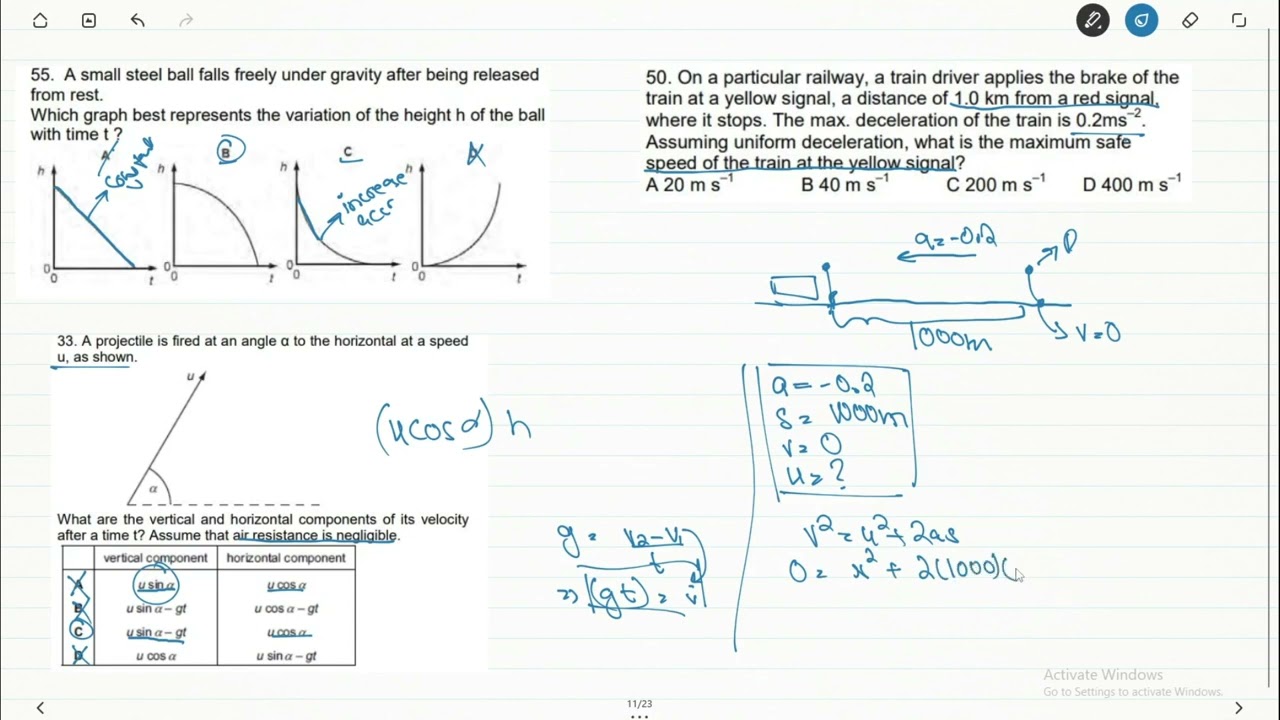 55. A small steel ball falls freely under gravity after being released
from rest.
Which graph best represents the variation of the height h of the ball
with time t ?
A
B
C
h
h
h
h
constant
increase
accr
0
0
0
0
0
0
0
0
t
t
t
t
33. A projectile is fired at an angle α to the horizontal at a speed
u, as shown.
u
α
(u cos α) h
What are the vertical and horizontal components of its velocity
after a time t? Assume that air resistance is negligible.
vertical component horizontal component
A u sin α u cos α
B u sin α – gt u cos α – gt
C u sin α – gt u cos α
D u cos α u sin α – gt
g = v2 - v1
t
=> (gt) = v
50. On a particular railway, a train driver applies the brake of the
train at a yellow signal, a distance of 1.0 km from a red signal,
where it stops. The max. deceleration of the train is 0.2ms⁻².
Assuming uniform deceleration, what is the maximum safe
speed of the train at the yellow signal?
A 20 m s⁻¹ B 40 m s⁻¹ C 200 m s⁻¹ D 400 m s⁻¹
a = -0.2
1000m
v = 0
a = -0.2
s = 1000m
v = 0
u = ?
v² = u² + 2as
0 = x² + 2(1000)(
Activate Windows
Go to Settings to activate Windows.
11/23